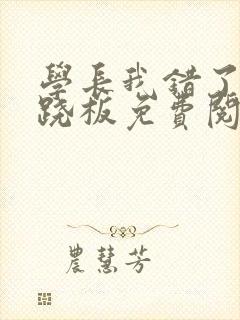 學長我錯了
跷板免費閱
農慧芳